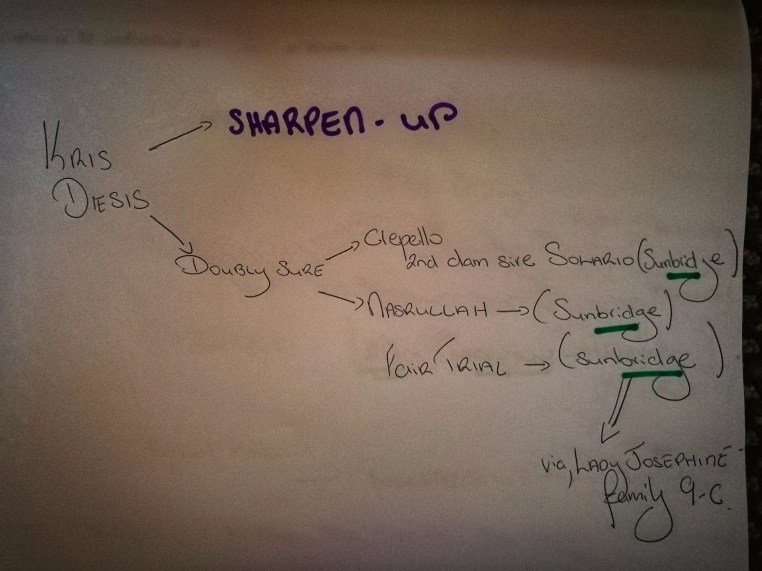 KRIS
DIESIS
SHARPEN-UP
DOUBLY SURE
Crepello
2nd dam sire SOLARIO (Sunbridge)
NASRULLAH → (Sunbridge)
FAIR TRIAL → (Sunbridge)
via, LADY JOSEPHINE
family 9-C.